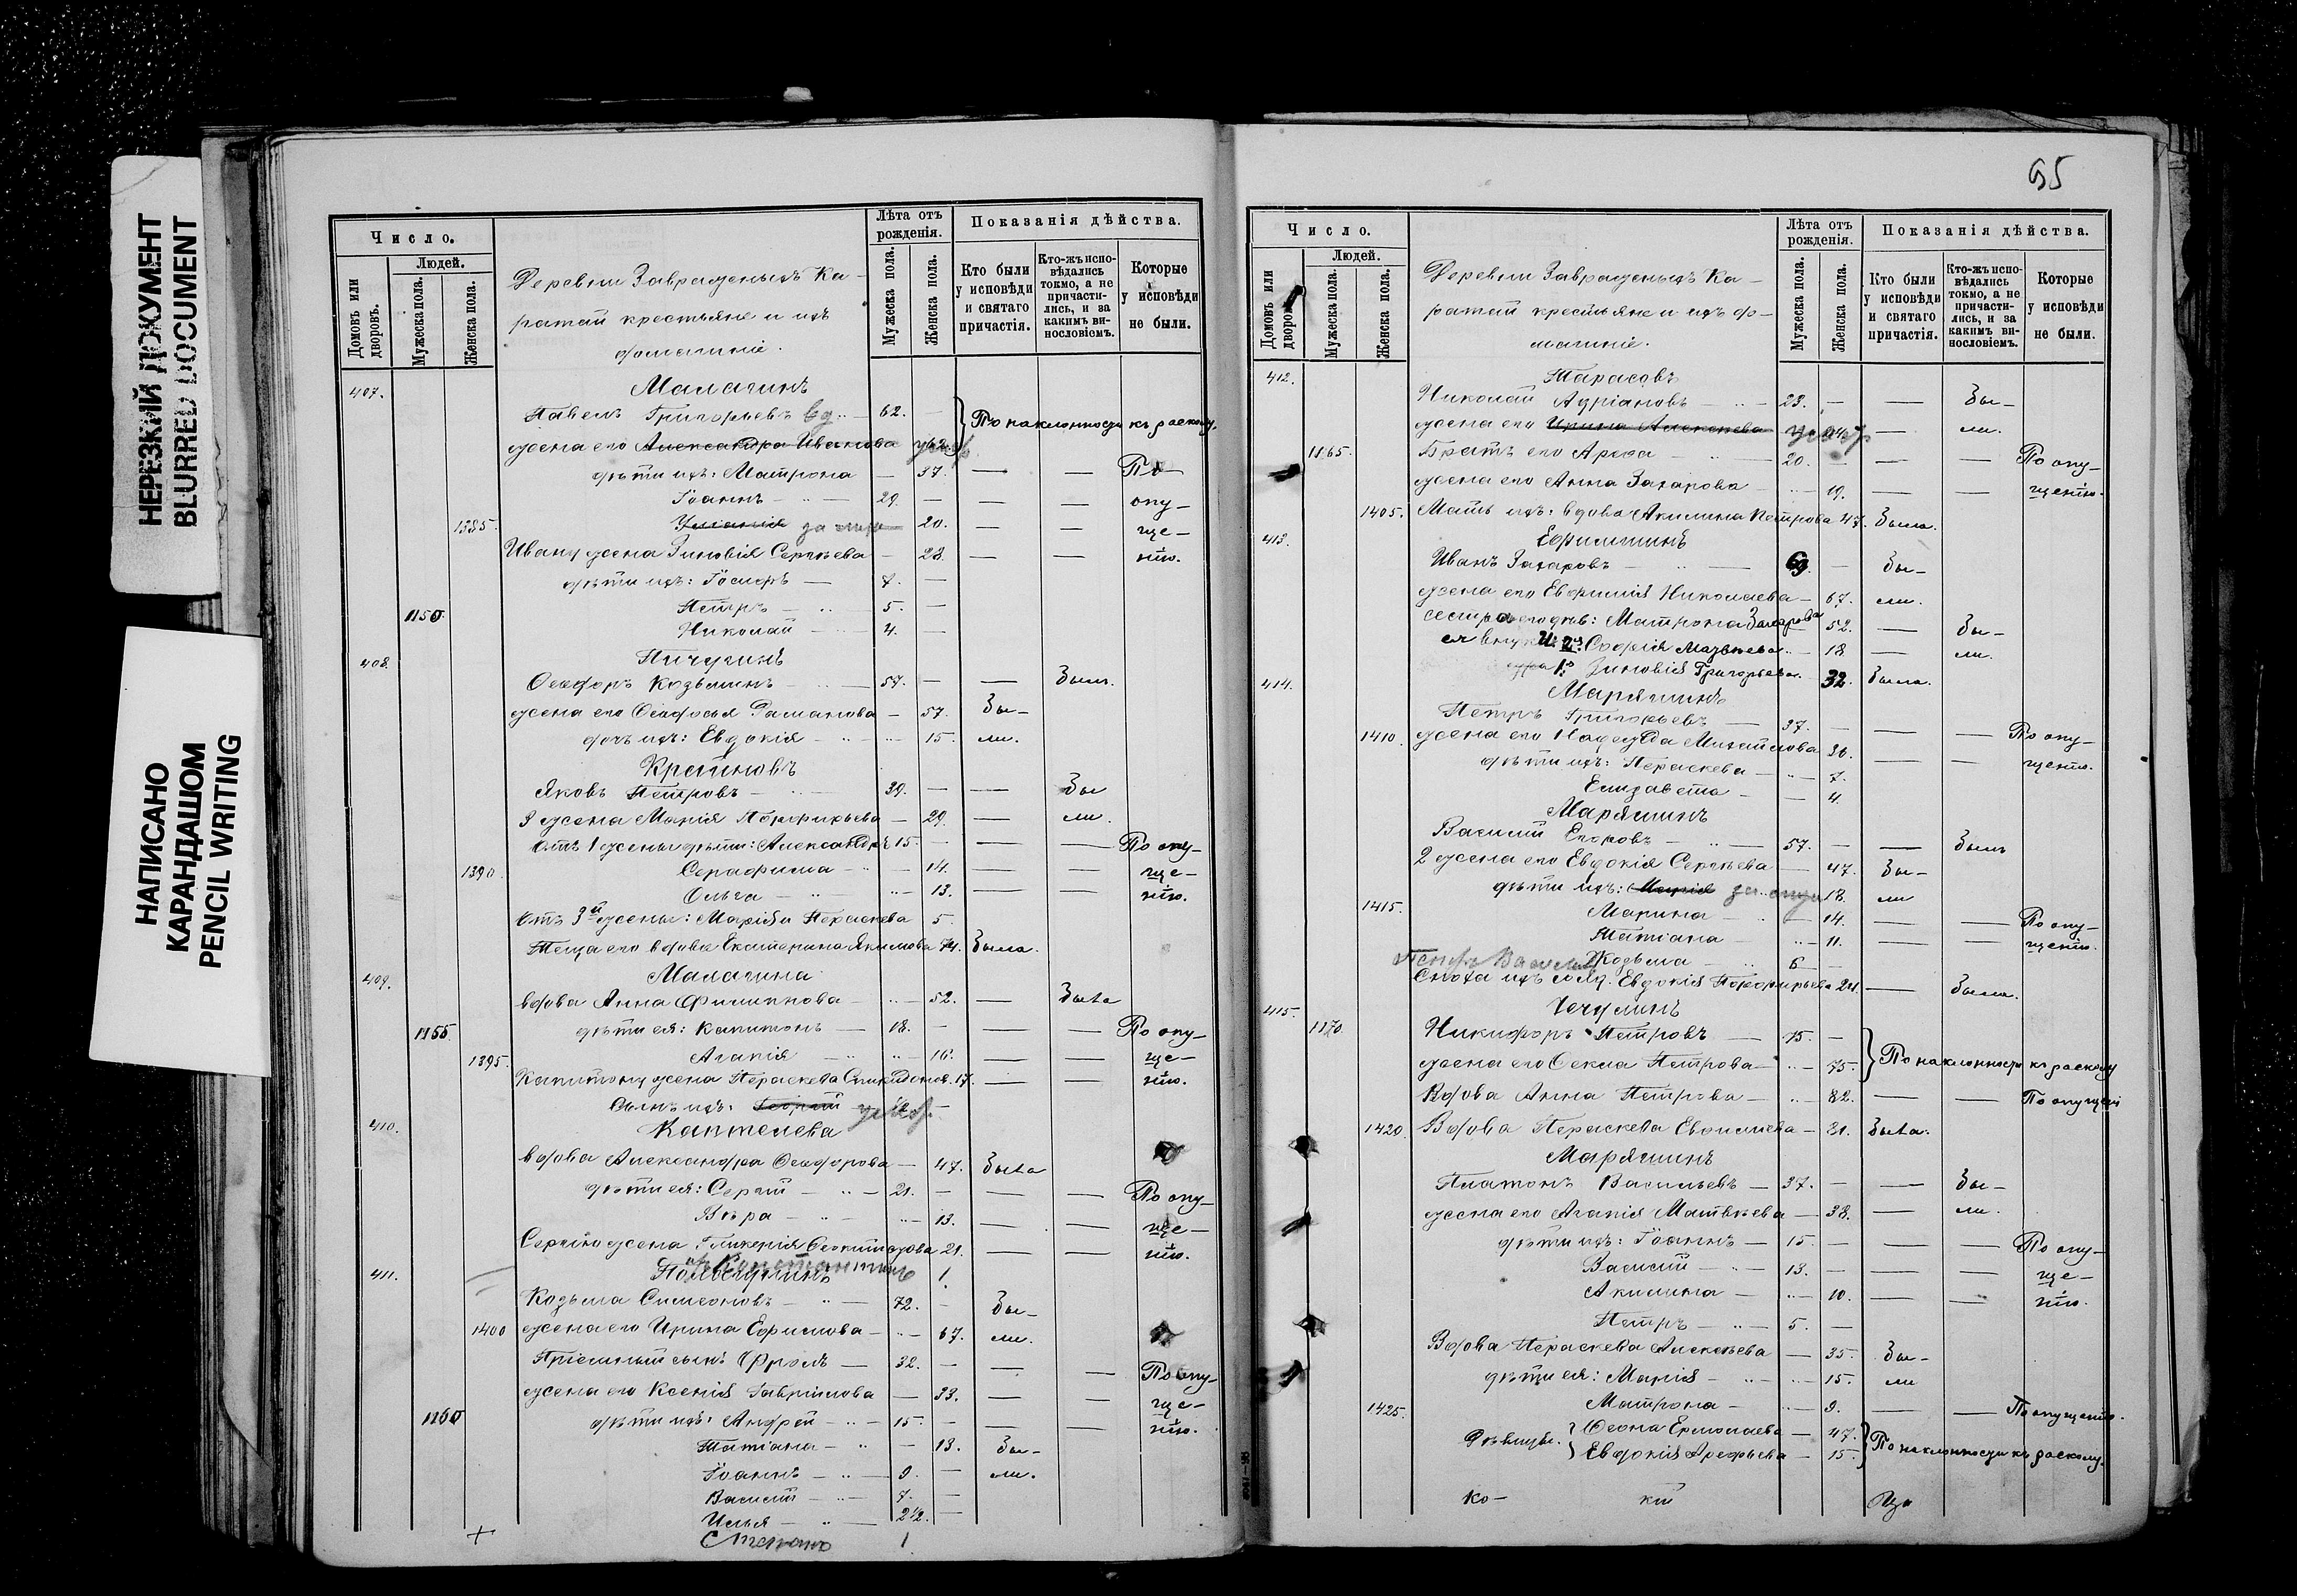 НЕРЕЗКИЙ ДОКУМЕНТ
BLURRED DOCUMENT
НАПИСАНО
КАРАНДАШОМ
PENCIL WRITING
Число.
Лѣта отъ рожденія.
Показанія дѣйства.
Домовъ или дворовъ.
Людей.
Мужеска пола.
Женска пола.
Деревни Завраженыхъ Ка-
ратай крестьяне и ихъ
домашніе.
Мужеска пола.
Женска пола.
Кто были у исповѣди и святаго причастія.
Кто-жъ исповѣдались токмо, а не причастились, и за какимъ винословіемъ.
Которые у исповѣди не были.
407. Малагинъ
Павелъ Григорьевъ вд 62. — По наклонности къ расколу.
жена его Александра Иванова 62
дѣти ихъ: Матрона — 37. — — По
Іоаннъ — 29. — — — опу-
1385. 20. — — ще-
Ивану жена Зиновія Сергѣева — 28. — — нію.
дѣти ихъ: — 7. —
1150. Петръ — 5. —
Николай 4. —
408. Пичугинъ
Ѳеодоръ Козьминъ — 57. — — Былъ.
жена его Ѳеодосья Романова — 57. Бы-
дочь ихъ: Евдокія — 15. ли.
Крайновъ
Яковъ Петровъ — 39. — — Бы
3 жена Марія Порфирьева — 29. — ли.
Отъ 1 жены дѣти: Александръ 15. — — — По опу-
1390. Серафима — 14. — — ще-
Ольга — 13. — — нію.
Отъ 3й жены: Марія и Параскева 5.
Теща его вдова Екатерина Якимова 74. Была.
409. Малагина
вдова Анна Филиппова — 52. — Была
1155 дѣти ея: Капитонъ — 18. — — — По опу-
1395. Агапія — 16. — — ще-
Капитону жена Параскева Спиридонов. 17. — — нію.
Сынъ ихъ: Георгій
410. Каптелева
вдова Александра Ѳеодорова — 47. Была
дѣти ея: Сергій — 21. — — — По опу-
Вѣра — 13. — — ще-
Сергію жена Гликерія Ѳеоктистова 21. — — нію.
Константинъ 1.
411.
Козьма Симеоновъ — 72. — Бы-
1400 жена его Ирина Ефимова — 67. ли.
Пріемный сынъ Фролъ — 32. — — — По опу-
жена его Ксенія Гавріилова — 33. — — ще-
1160 дѣти ихъ: Андрей — 15. — — — нію.
Татіана — 13. Бы-
Іоаннъ — 9. — ли.
Василій — 7. —
Илья — 2 1/2. —
Степанъ 1
65
Число.
Лѣта отъ рожденія.
Показанія дѣйства.
Домовъ или дворовъ.
Людей.
Мужеска пола.
Женска пола.
Деревни Завраженыхъ Ка-
ратай крестьяне и ихъ до-
машніе.
Мужеска пола.
Женска пола.
Кто были у исповѣди и святаго причастія.
Кто-жъ исповѣдались токмо, а не причастились, и за какимъ винословіемъ.
Которые у исповѣди не были.
412. Тарасовъ
Николай Адріановъ — 23. — — Бы-
жена его Ирина Алексѣева — ли.
1165. Братъ его — 20. — — — По опу-
жена его Анна Захарова — 19. — — щенію.
1405. Мать ихъ: вдова Акилина Петрова 47. Была.
413. Ефимшинъ
Иванъ Захаровъ — 69. — Бы-
жена его Евфимія Николаева — 67. ли.
Матрона Захарова 52. — Бы-
ея внуки: 2я Софія Матвѣева 18 — ли.
1: Зиновія Григорьева 32. Была.
414. Маряшинъ
Петръ Григорьевъ — 37. — — — По опу-
1410. жена его Надежда Михайлова 36. — — щенію.
дѣти ихъ: Параскева — 7.
Елизавета — 4.
Маряшинъ
Василій Егоровъ — 57. — — Былъ
2 жена его Евдокія Сергѣева — 47. Бы-
дѣти ихъ: Марія 18. ли
1415. Марина — 14. — — По опу-
Татіана — 11. — — щенію.
Козьма — 6 —
Сноха ихъ солд. Евдокія Порфирьева 24. — Была.
415. Чечулинъ
1170. Никифоръ Петровъ — 75. — По наклонности къ расколу
жена его Ѳекла Петрова — 75.
Вдова Анна Петрова — 82. — — По опущені
1420. Вдова Параскева — 31. Была.
Маряшинъ
Платонъ Васильевъ — 37. — — Бы-
жена его Агапія Матвѣева — 38. — ли.
дѣти ихъ: Іоаннъ — 15. — — — По опу-
Василій — 13. — — — ще-
Акилина — 10. — — нію.
Петръ — 5. —
Вдова Параскева Алексѣева — 35. Бы-
дѣти ея: Марія — 15. ли
1425. Матрона — 9. — — По опущенію.
Дѣвицы: Ѳеона Ермолаева — 47. По наклонности къ расколу.
Евдокія Арефьева — 15.
Ко- кій